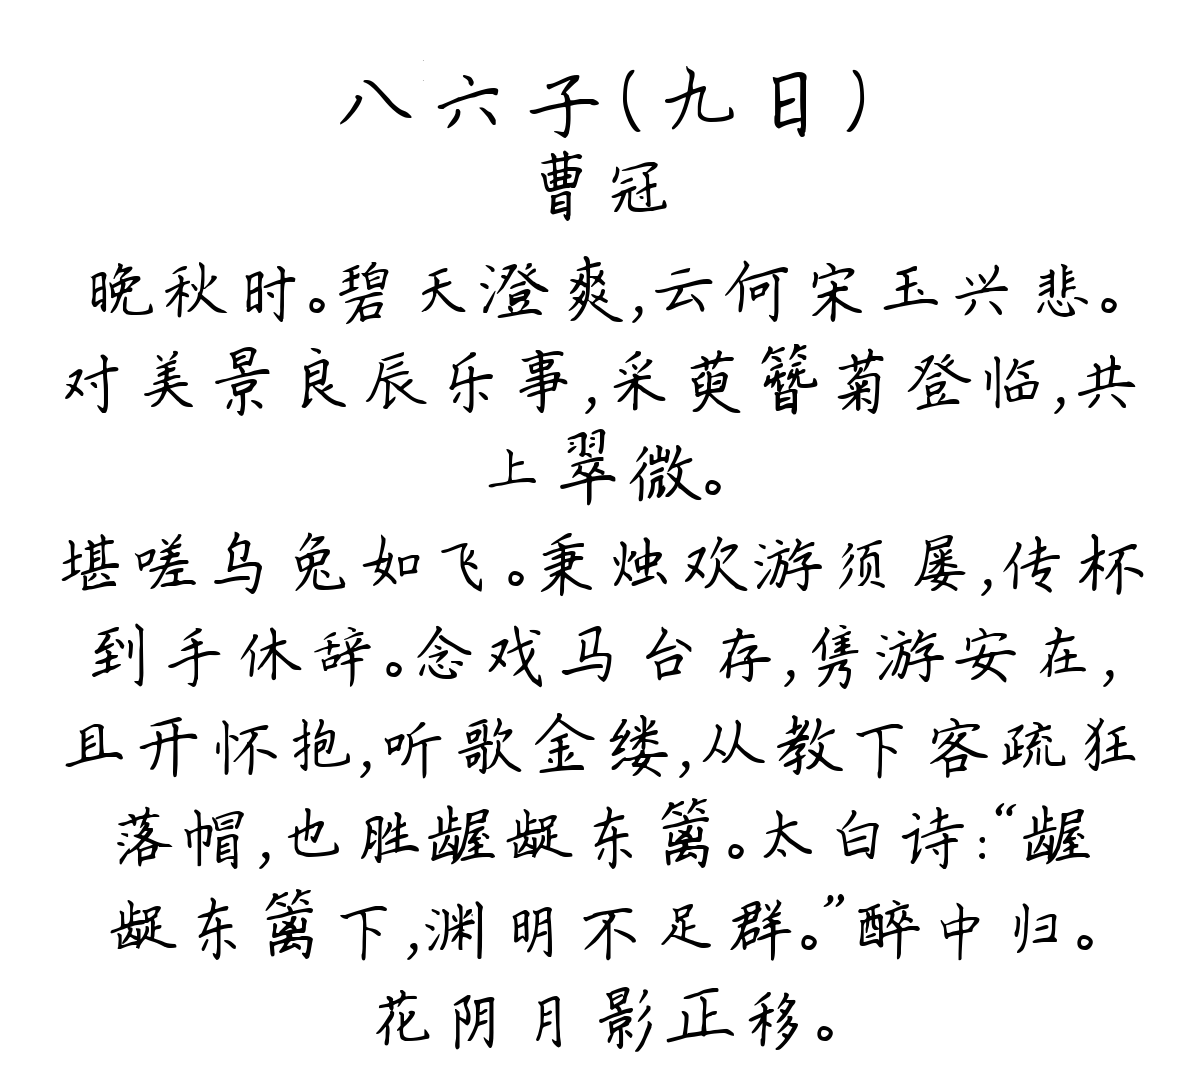 八六子(九日)
曹冠
晚秋时。碧天澄爽,云何宋玉兴悲。
对美景良辰乐事,采萸簪菊登临,共
上翠微。
堪嗟乌兔如飞。秉烛欢游须屡,传杯
到手休辞。念戏马台存,隽游安在,
且开怀抱,听歌金缕,从教下客疏狂
落帽,也胜龌龊东篱。太白诗:“龌
龊东篱下,渊明不足群。”醉中归。
花阴月影正移。